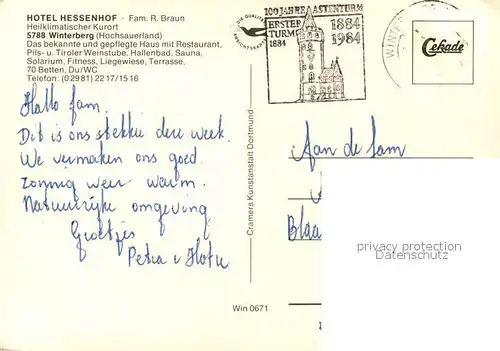 HOTEL HESSENHOF · Fam. R. Braun
Heilklimatischer Kurort
5788 Winterberg (Hochsauerland)
Das bekannte und gepflegte Haus mit Restaurant,
Pils- u. Tiroler Weinstube. Hallenbad, Sauna,
Solarium, Fitness, Liegewiese, Terrasse.
70 Betten, Du/WC
Telefon: (0 29 81) 22 17/15 16
Hallo fam.
Dit is ons stekkie deze week.
We vermaken ons goed.
Zonnig weer warm.
Natuurlijke omgeving
Groetjes
Petra
100 JAHRE ASTENTURM
ERSTER 1884
TURM 1984
1884
Cekade
Cramers Kunstanstalt Dortmund
Aan de fam
Blaa
privacy protection
Datenschutz
Win 0671